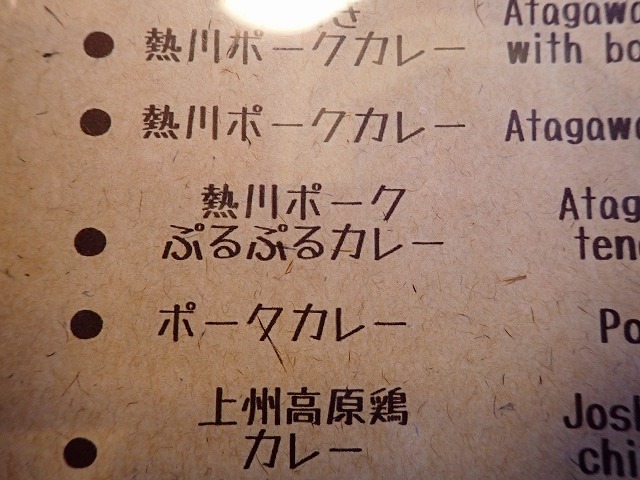 熱川ポークカレー with
● 熱川ポークカレー Atagawa
熱川ポーク
● ぷるぷるカレー
● ポータカレー
上州高原鶏
● カレー